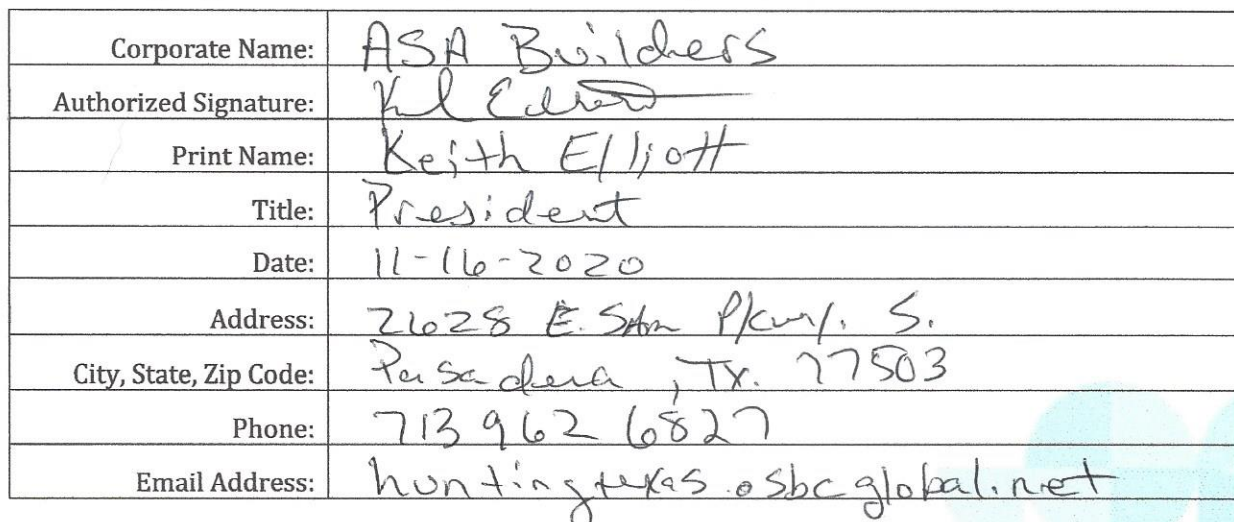 Corporate Name: ASA Builders
Authorized Signature:
Print Name: Keith Elliott
Title: President
Date: 11-16-2020
Address: 2628 E. Sam Pkwy. S.
City, State, Zip Code: Pasadena, TX. 77503
Phone: 713 962 6827
Email Address: huntingtexas.osbcglobal.net